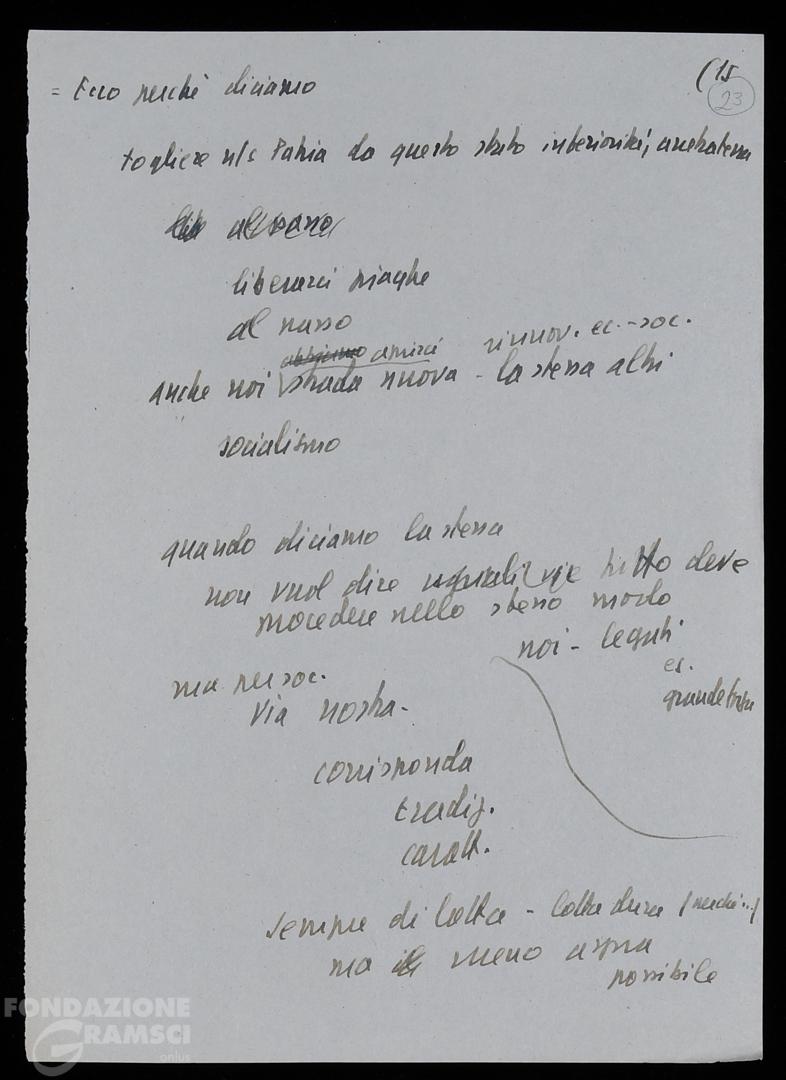 (15
23
= Ecco perché diciamo
togliere n/s Patria da questo stato inferiorità, arretratezza
liberarci piaghe
al passo
rinnov. ec.-soc.
anche noi strada nuova - la stessa altri
socialismo
quando diciamo la stessa
non vuol dire che tutto deve
procedere nello stesso modo
noi - legati
es.
ma per soc.
via nostra -
corrisponda
tradiz.
caratt.
sempre di lotta - lotta dura (perché...)
ma il meno aspra
possibile
FONDAZIONE
GRAMSCI
onlus